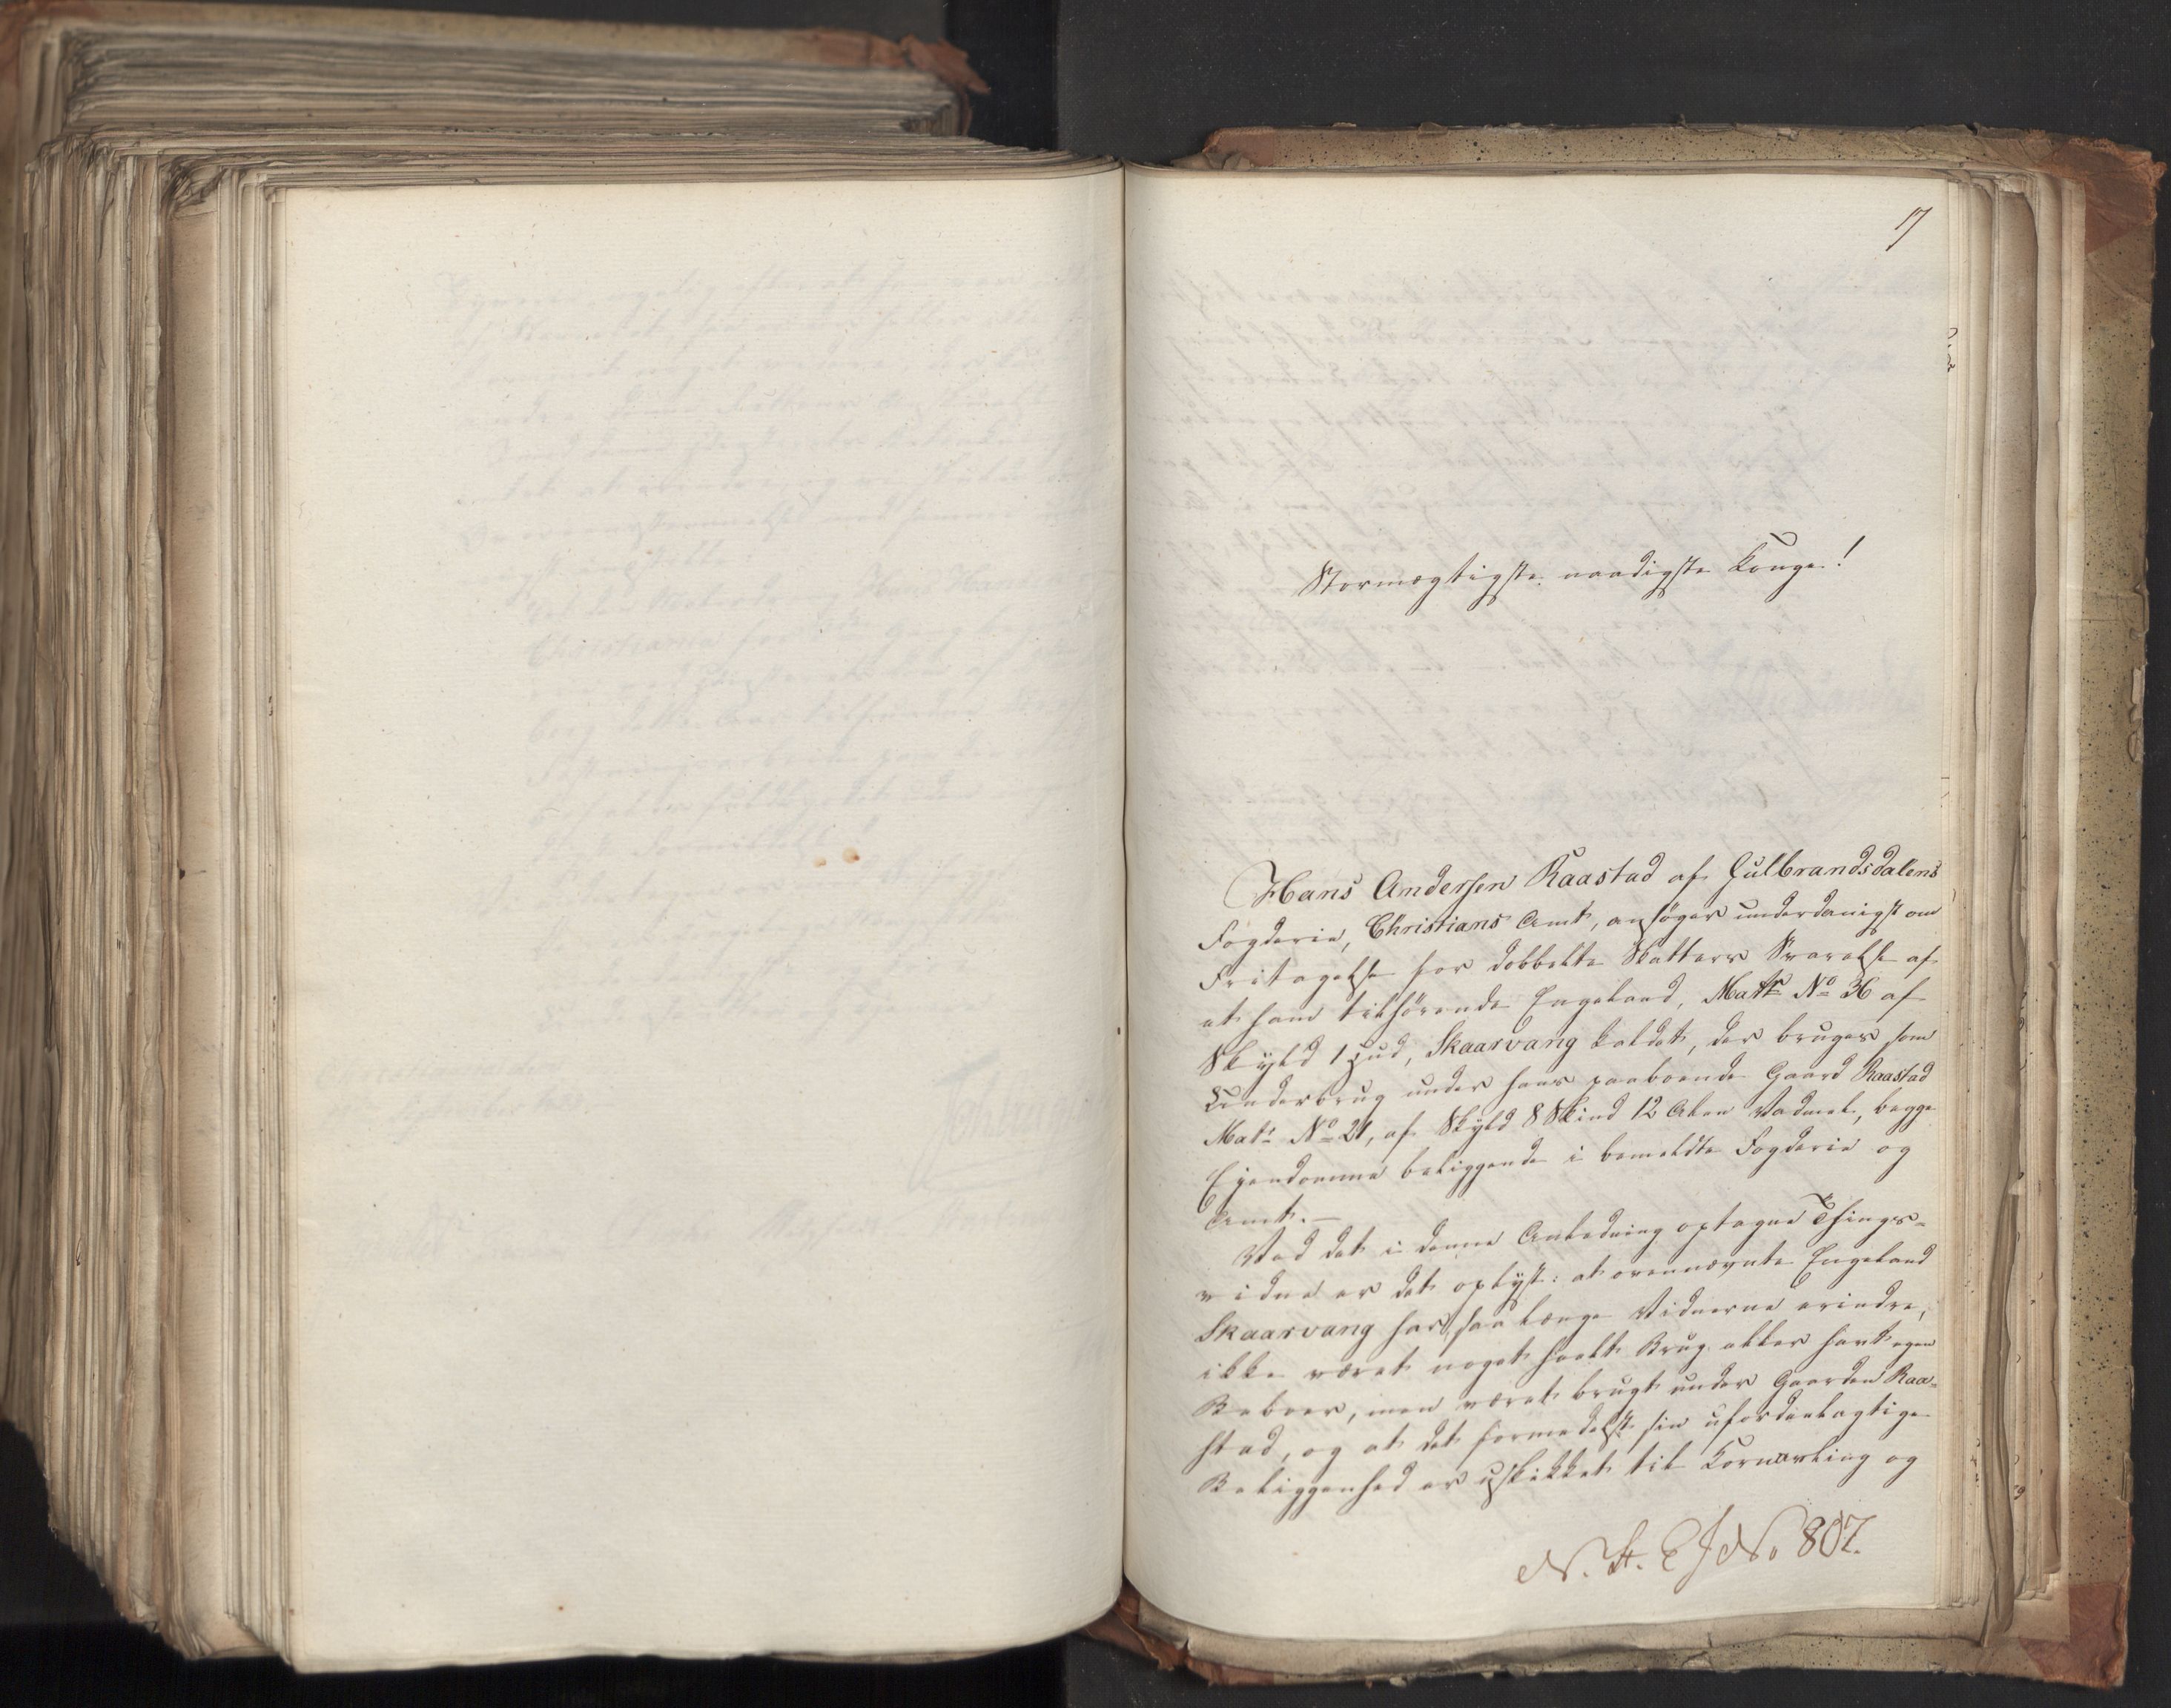 17
Stormægtigste naadigste Konge!
Hans Andersen Raastad af Gulbrandsdalens
Fogderie, Christians Amt, ansøger underdanigst om
Fritagelse for dobbelte Skatters Svarelse af
et ham tilhørende Engeland, Matr No 36 af
Skyld 1 Hud, Skaarvang kaldet, der bruges som
Underbrug under hans paaboende Gaard Raastad
Matr No 21, af Skyld 8 Skind 12 Alen Vadmel, begge
Ejendomme beliggende i bemeldte Fogderie og
Amt. —
Ved det i denne Anledning optagne Things-
vidne er det oplyst: at ovennævnte Engeland
Skaarvang har, saa længe Vidnerne erindre,
ikke været noget heelt Brug eller havt egen
Beboer, men været brugt under Gaarden Raa-
stad, og at det formedelst sin ufordeelagtige
Beliggenhed er uskikket til Kornavling og
N. St. C J No 807.